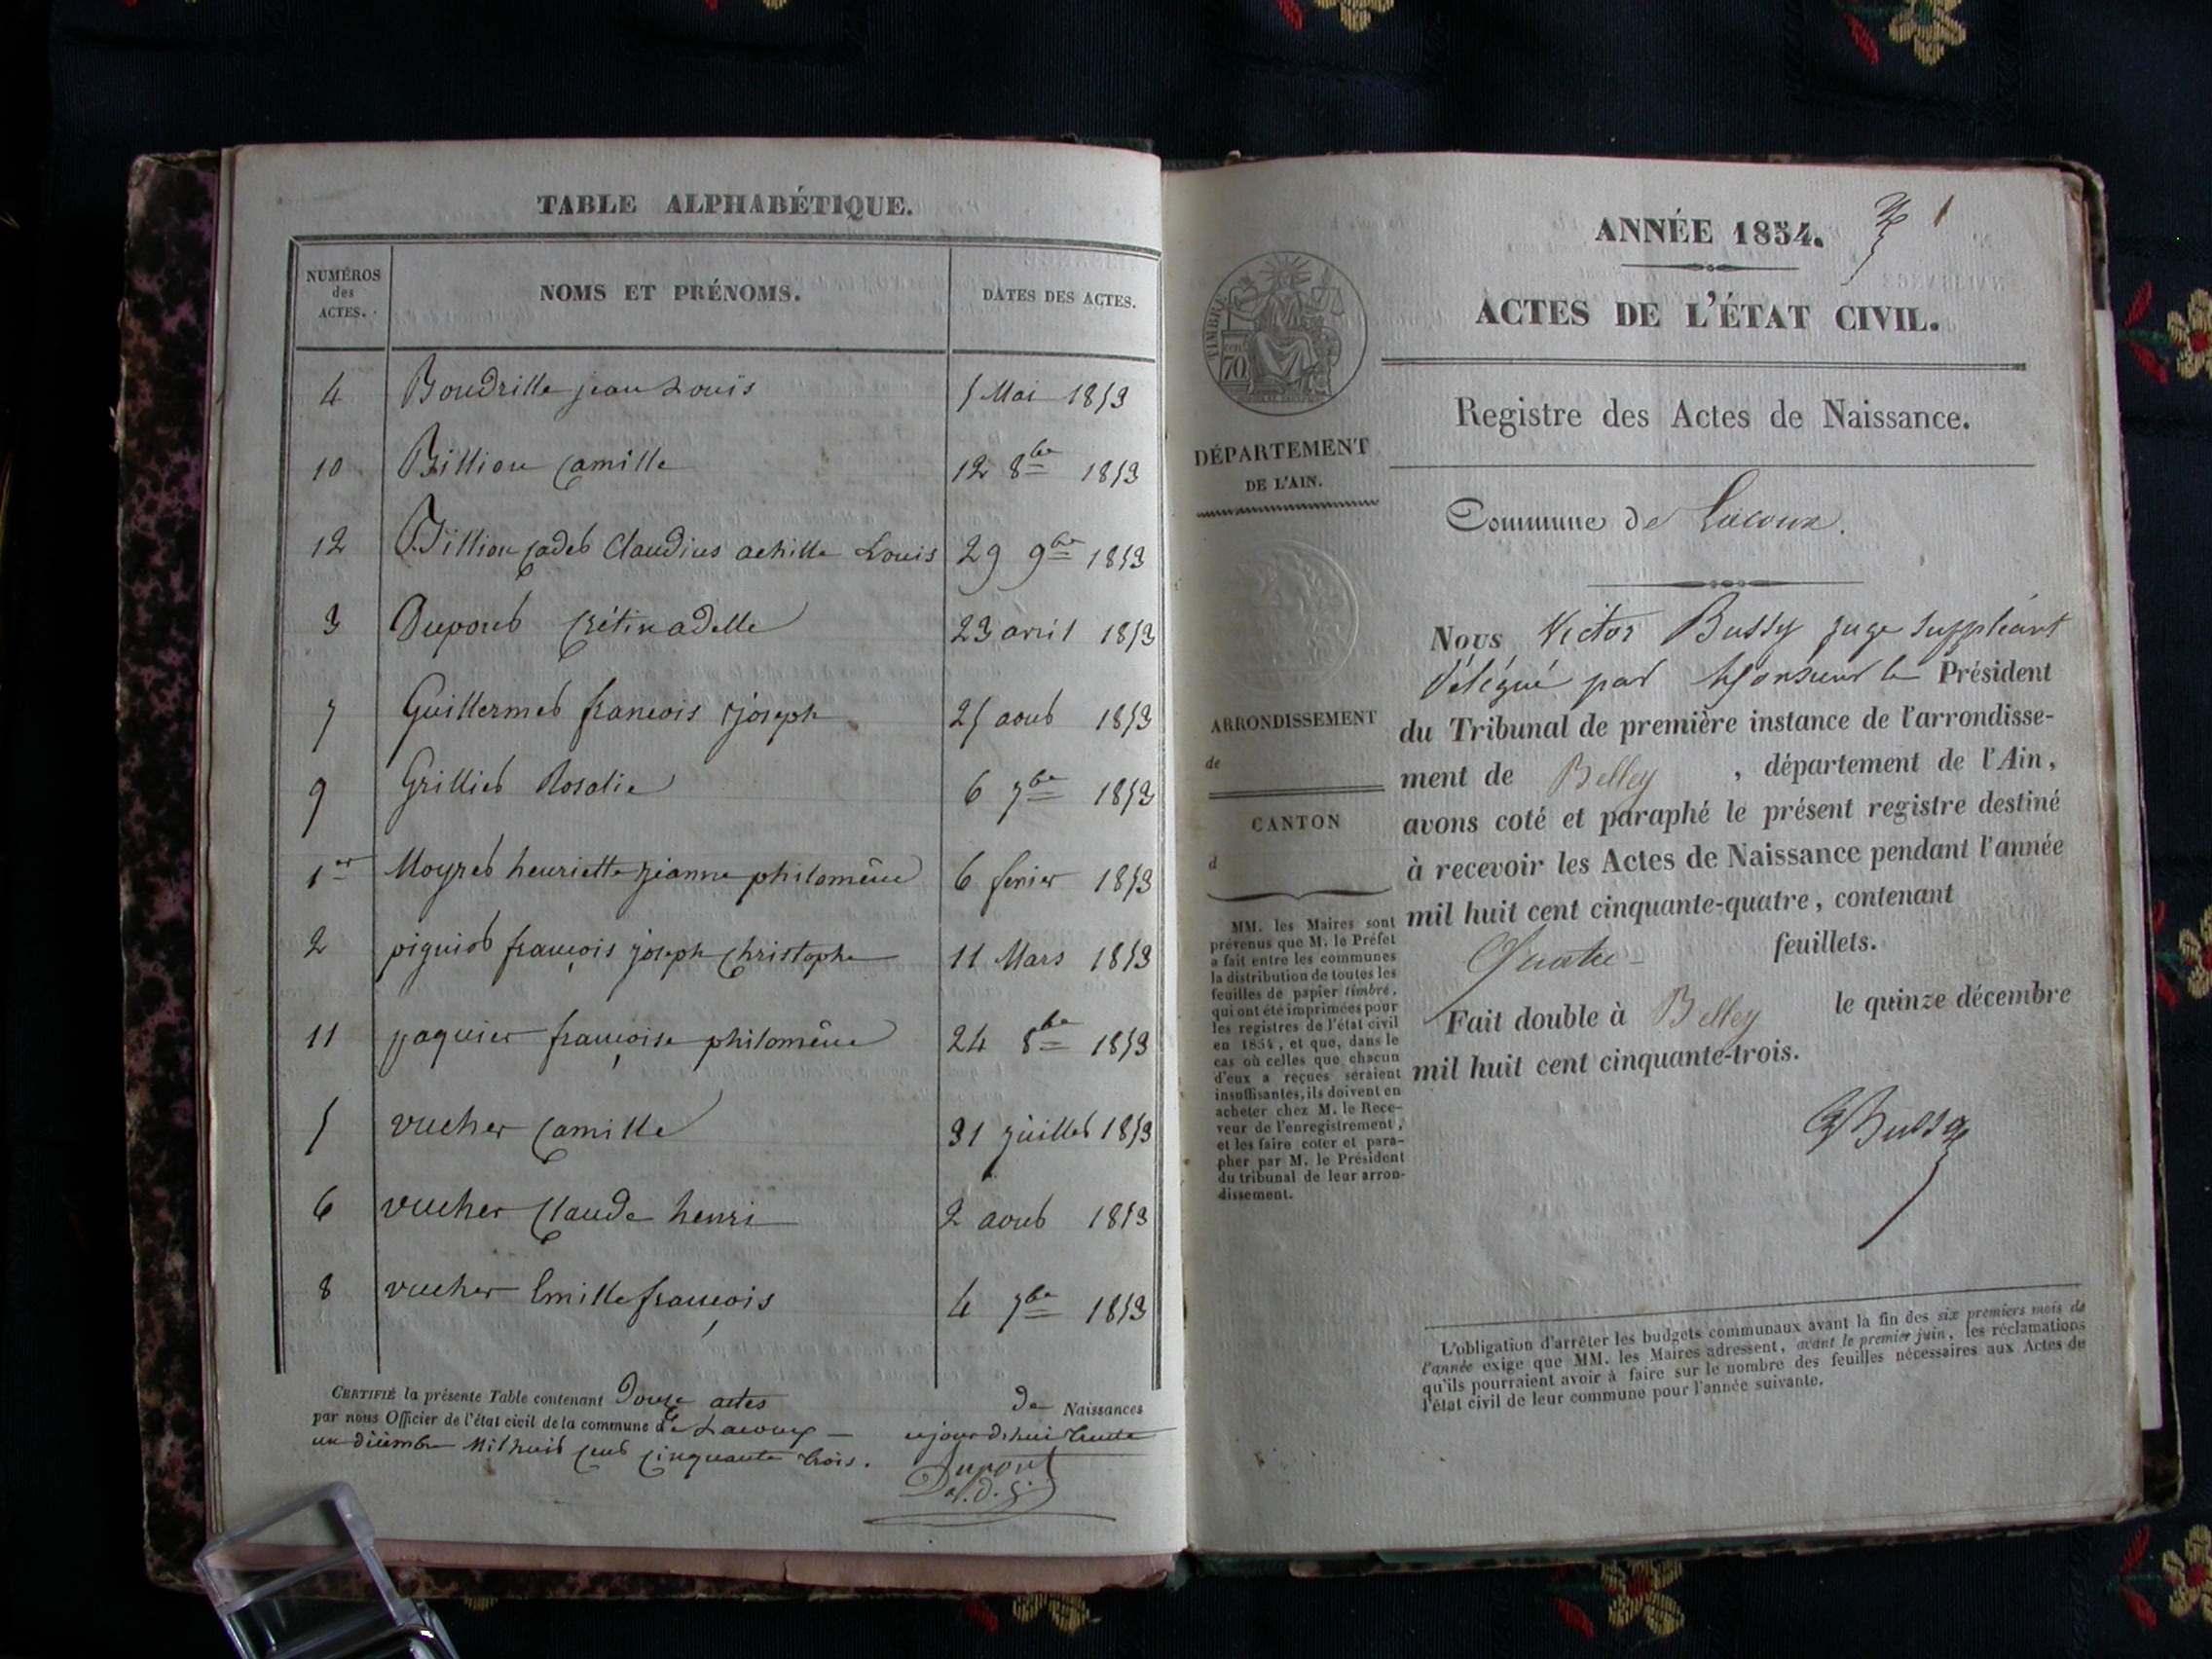 TABLE ALPHABÉTIQUE.
NUMÉROS
des
ACTES.
NOMS ET PRÉNOMS.
DATES DES ACTES.
4 Boudrille jean Louis 5 Mai 1853
10 Billion Camille 12 8bre 1853
12 Billion Cadet Claudius achille Louis 29 9bre 1853
3 Dupont 23 avril 1853
7 Guillermet françois joseph 25 aout 1853
9 Grillet Rosalie 6 7bre 1853
1er Moyret henriette jeanne philomène 6 fevier 1853
2 piguiot françois joseph Christophe 11 Mars 1853
11 paquier françoise philomène 24 8bre 1853
5 vucher Camille 31 juillet 1853
6 vucher Claude henri 2 aout 1853
8 vucher Emille françois 4 7bre 1853
CERTIFIÉ la présente Table contenant Douze actes de Naissances
par nous Officier de l'état civil de la commune de Lacoux cejourdhui trente
un décembre Mil huit Cent Cinquante trois.
Dupont
ANNÉE 1854. 1
ACTES DE L'ÉTAT CIVIL.
TIMBRE
70
Registre des Actes de Naissance.
DÉPARTEMENT
DE L'AIN.
Commune de Lacoux.
Nous Victor Bussy juge suppléant
délégué par Monsieur le Président
du Tribunal de première instance de l'arrondisse-
ment de Belley, département de l'Ain,
avons coté et paraphé le présent registre destiné
à recevoir les Actes de Naissance pendant l'année
mil huit cent cinquante-quatre, contenant
Quatre feuillets.
Fait double à Belley le quinze décembre
mil huit cent cinquante-trois.
Bussy
ARRONDISSEMENT
de
CANTON
d
MM. les Maires sont
prévenus que M. le Préfet
a fait entre les communes
la distribution de toutes les
feuilles de papier timbré,
qui ont été imprimées pour
les registres de l'état civil
en 1854, et que, dans le
cas où celles que chacun
d'eux a reçues seraient
insuffisantes, ils doivent en
acheter chez M. le Rece-
veur de l'enregistrement,
et les faire coter et para-
pher par M. le Président
du tribunal de leur arron-
dissement.
L'obligation d'arrêter les budgets communaux avant la fin des six premiers mois de
l'année exige que MM. les Maires adressent, avant le premier juin, les réclamations
qu'ils pourraient avoir à faire sur le nombre des feuilles nécessaires aux Actes de
l'état civil de leur commune pour l'année suivante.